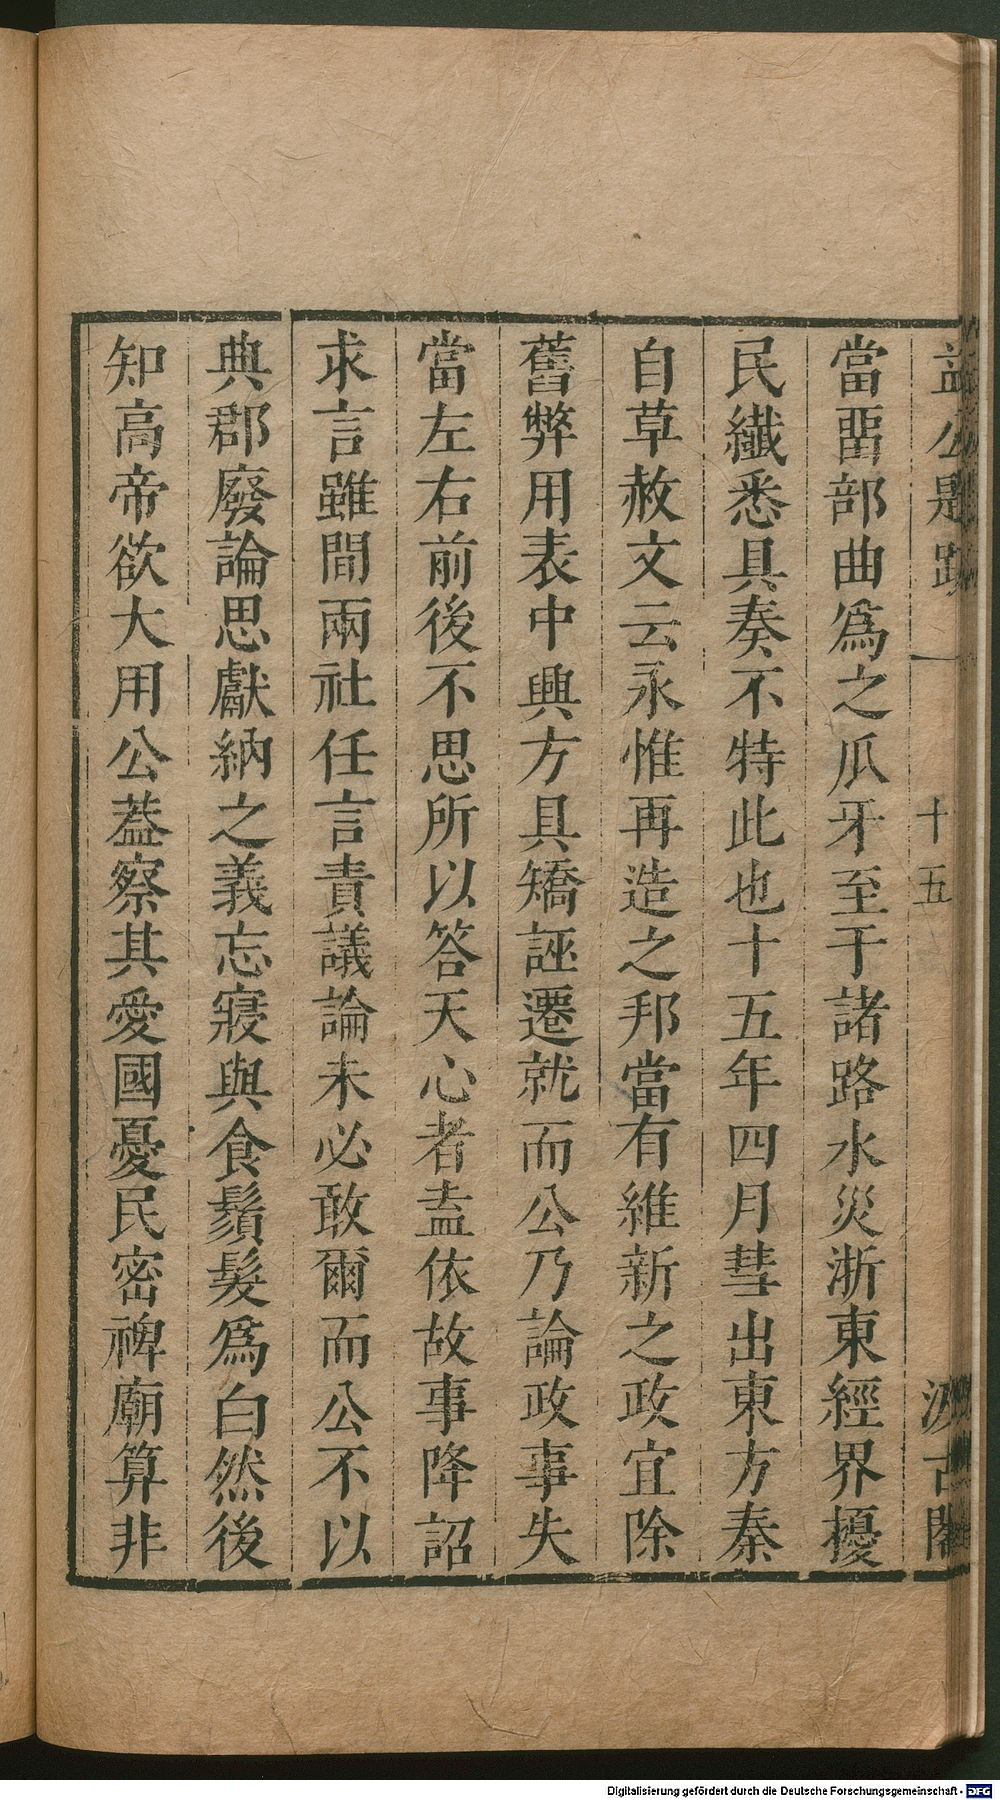 益公題跋 十五 汲古閣
當畱部曲爲之爪牙至于諸路水災浙東經界擾
民纖悉具奏不特此也十五年四月彗出東方秦
自草赦文云永惟再造之邦當有維新之政宜除
舊弊用表中興方具矯誣遷就而公乃論政事失
當左右前後不思所以答天心者盍依故事降詔
求言雖間兩社任言責議論未必敢爾而公不以
典郡廢論思獻納之義忘寢與食鬚髮爲白然後
知高帝欲大用公葢察其愛國憂民密裨廟算非
Digitalisierung gefördert durch die Deutsche Forschungsgemeinschaft - DFG